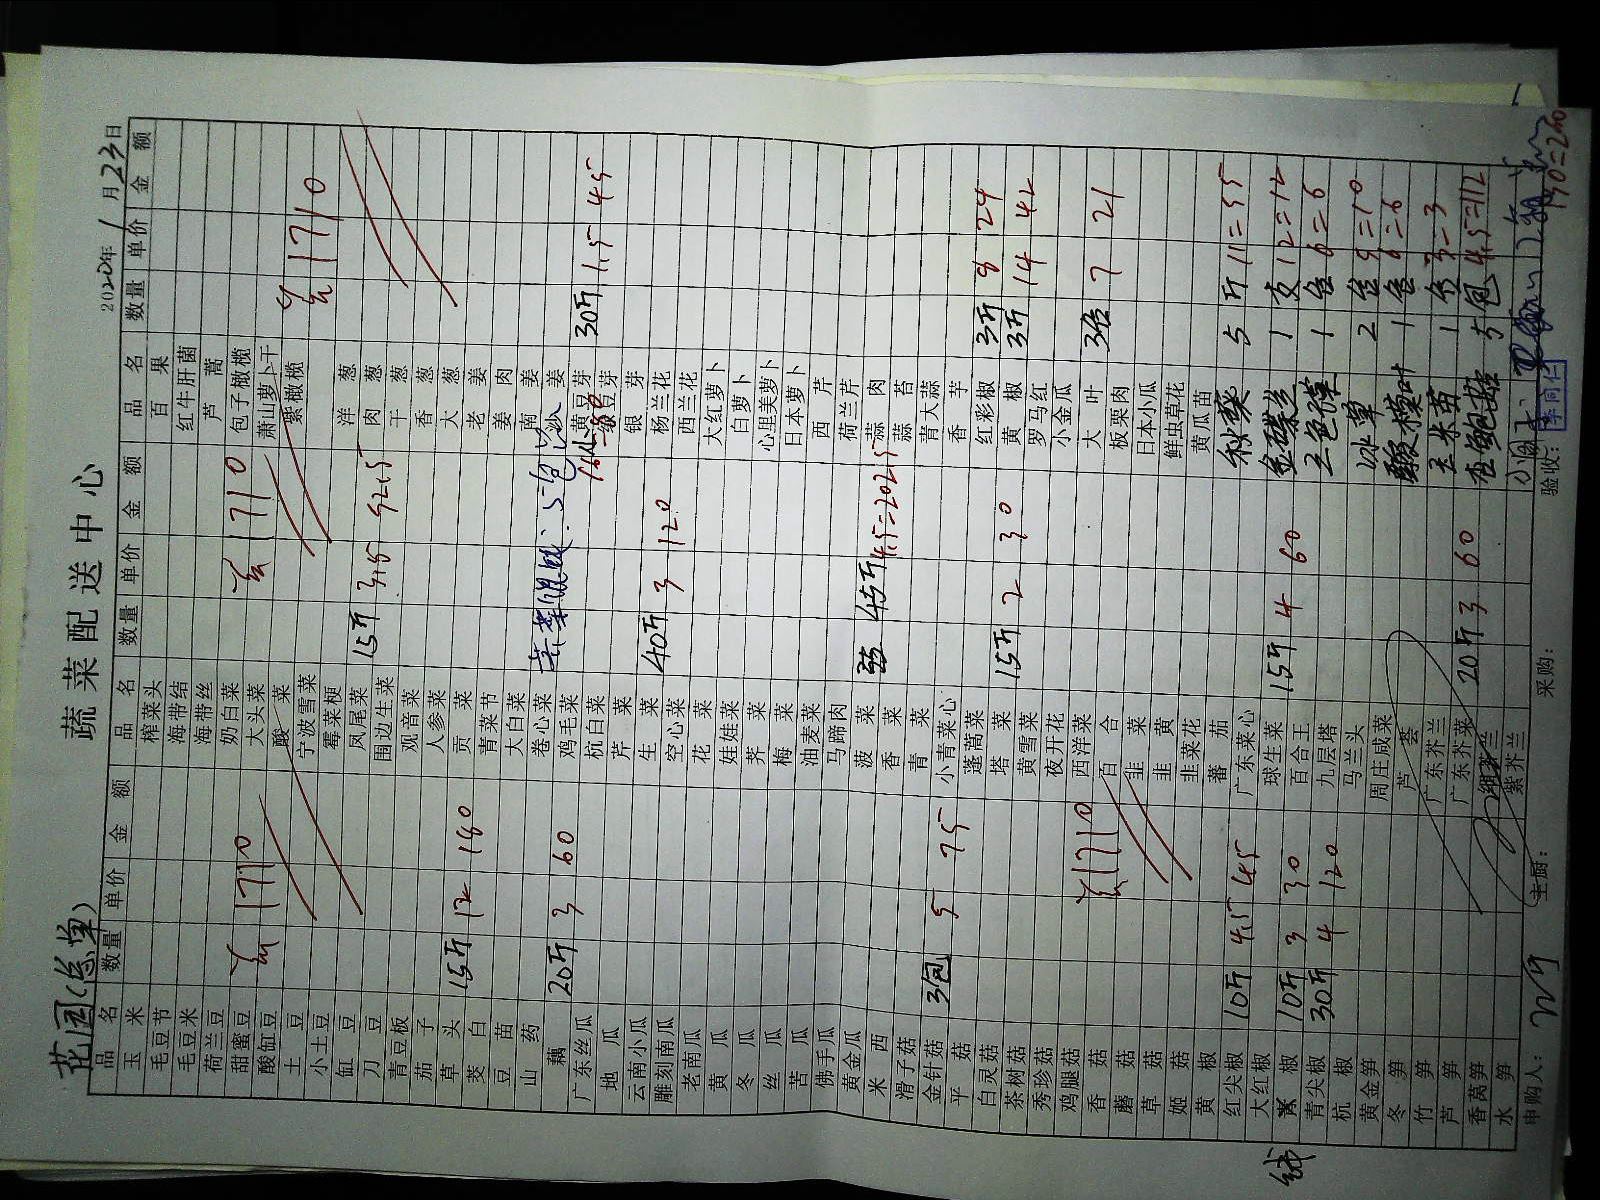 蔬菜配送中心
花园(总单)
2020年1月23日
品名 数量 单价 金额 品名 数量 单价 金额 品名 数量 单价 金额
玉米 榨菜头 百果
毛豆节 海带结 红牛肝菌
毛豆米 海带丝 芦蒿
荷兰豆 奶白菜 包子橄榄
甜蜜豆 大头菜 萧山萝卜干
酸缸豆 酸菜 紫橄榄
土豆 宁波雪菜
小土豆 霉菜梗 洋葱
缸豆 凤尾菜 15斤 3.5 52.5 肉葱
刀豆 围边生菜 干葱
青豆板 观音菜 香葱
茄子 人参菜 大葱
草头 15斤 12 180 贡菜 老姜
茭白 青菜节 姜肉
豆苗 大白菜 南姜
山药 卷心菜 姜
藕 20斤 3 60 鸡毛菜 黄豆芽 30斤 1.5 45
广东丝瓜 杭白菜 绿豆芽
地瓜 芹菜 银芽
云南小瓜 生菜 40斤 3 120 杨兰花
雕刻南瓜 空心菜 西兰花
老南瓜 花菜 大红萝卜
黄瓜 娃娃菜 白萝卜
冬瓜 荠菜 心里美萝卜
丝瓜 梅菜 日本萝卜
苦瓜 油麦菜 西芹
佛手瓜 马蹄肉 荷兰芹
黄金瓜 菠菜 45斤 4.5=202.5 蒜肉
米西 香菜 蒜苔
滑子菇 青菜 青大蒜
金针菇 3包 5 75 小青菜心 香芋
平菇 蓬蒿菜 红彩椒 3斤 8 24
白灵菇 塔菜 15斤 2 30 黄椒 3斤 14 42
茶树菇 黄雪菜 罗马红
秀珍菇 夜开花 小金瓜
鸡腿菇 西洋菜 大叶 3包 7 21
香菇 百合 板栗肉
蘑菇 韭菜 日本小瓜
草菇 韭黄 鲜虫草花
姬菇 韭菜花 黄瓜苗
黄椒 蕃茄 秋葵 5斤 11=55
红尖椒 10斤 4.5 45 广东菜心
大红椒 球生菜 15斤 4 60 金蝶兰 1支 12=12
椒 10斤 3 30 百合王 三色堇 1盒 6=6
青尖椒 30斤 4 120 九层塔
杭椒 马兰头 冰草 2盒
黄金笋 周庄咸菜 酸模叶 1盒
冬笋 芦荟 玉米苗 1盒
竹笋 广东芥兰 杏鲍菇 5包 4.5=112
芦笋 广东芥菜 20斤 3 60
香莴笋
水笋 紫芥兰
申购人: 主厨: 采购: 验收:
李同仁
1710
1710
1710
1710